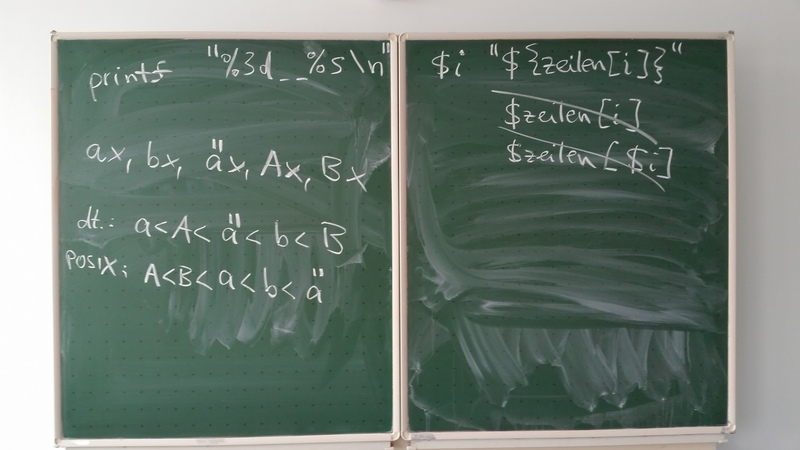 printf "%3d__%s\n" $i "${zeilen[i]}"
$zeilen[i]
$zeilen[$i]
ax, bx, äx, Ax, Bx
dt.: a<A<ä<b<B
POSIX: A<B<a<b<ä